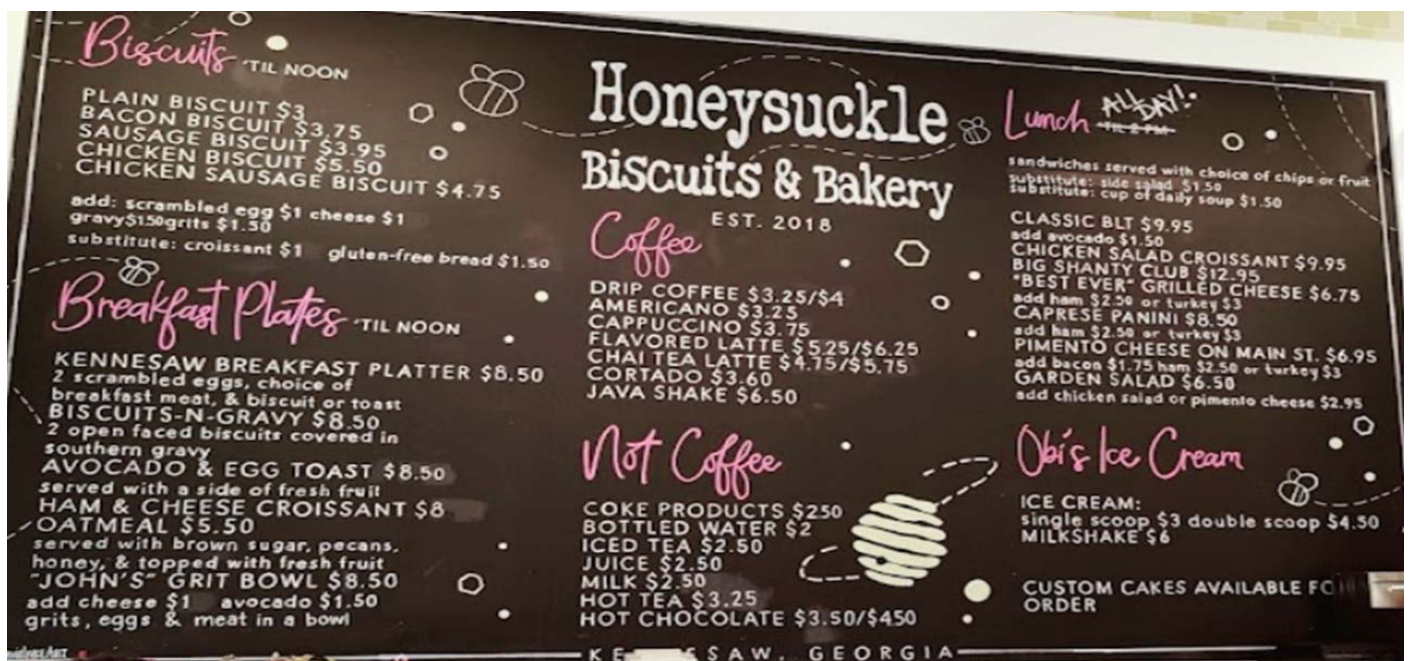 Biscuits 'TIL NOON
PLAIN BISCUIT $3
BACON BISCUIT $3.75
SAUSAGE BISCUIT $3.95
CHICKEN BISCUIT $5.50
CHICKEN SAUSAGE BISCUIT $4.75
add: scrambled egg $1 cheese $1
gravy $1.50 grits $1.50
substitute: croissant $1 gluten-free bread $1.50
Breakfast Plates 'TIL NOON
KENNESAW BREAKFAST PLATTER $8.50
2 scrambled eggs, choice of
breakfast meat, & biscuit or toast
BISCUITS-N-GRAVY $8.50
2 open faced biscuits covered in
southern gravy
AVOCADO & EGG TOAST $8.50
served with a side of fresh fruit
HAM & CHEESE CROISSANT $8
OATMEAL $5.50
served with brown sugar, pecans,
honey, & topped with fresh fruit
"JOHN'S" GRIT BOWL $8.50
add cheese $1 avocado $1.50
grits, eggs & meat in a bowl
Honeysuckle
Biscuits & Bakery
EST. 2018
Coffee
DRIP COFFEE $3.25/$4
AMERICANO $3.25
CAPPUCCINO $3.75
FLAVORED LATTE $525/$6.25
CHAI TEA LATTE $4.75/$5.75
CORTADO $3.60
JAVA SHAKE $6.50
Not Coffee
COKE PRODUCTS $250
BOTTLED WATER $2
ICED TEA $2.50
JUICE $2.50
MILK $2.50
HOT TEA $3.25
HOT CHOCOLATE $3.50/$450
GEORGIA
Lunch ALL DAY!
'TIL 2 PM
sandwiches served with choice of chips or fruit
substitute: side salad $1.50
substitute: cup of daily soup $1.50
CLASSIC BLT $9.95
add avocado $1.50
CHICKEN SALAD CROISSANT $9.95
BIG SHANTY CLUB $12.95
"BEST EVER" GRILLED CHEESE $6.75
add ham $2.50 or turkey $3
CAPRESE PANINI $8.50
add ham $2.50 or turkey $3
PIMENTO CHEESE ON MAIN ST. $6.95
add bacon $1.75 ham $2.50 or turkey $3
GARDEN SALAD $6.50
add chicken salad or pimento cheese $2.95
Obi's Ice Cream
ICE CREAM:
single scoop $3 double scoop $4.50
MILKSHAKE $6
CUSTOM CAKES AVAILABLE
ORDER